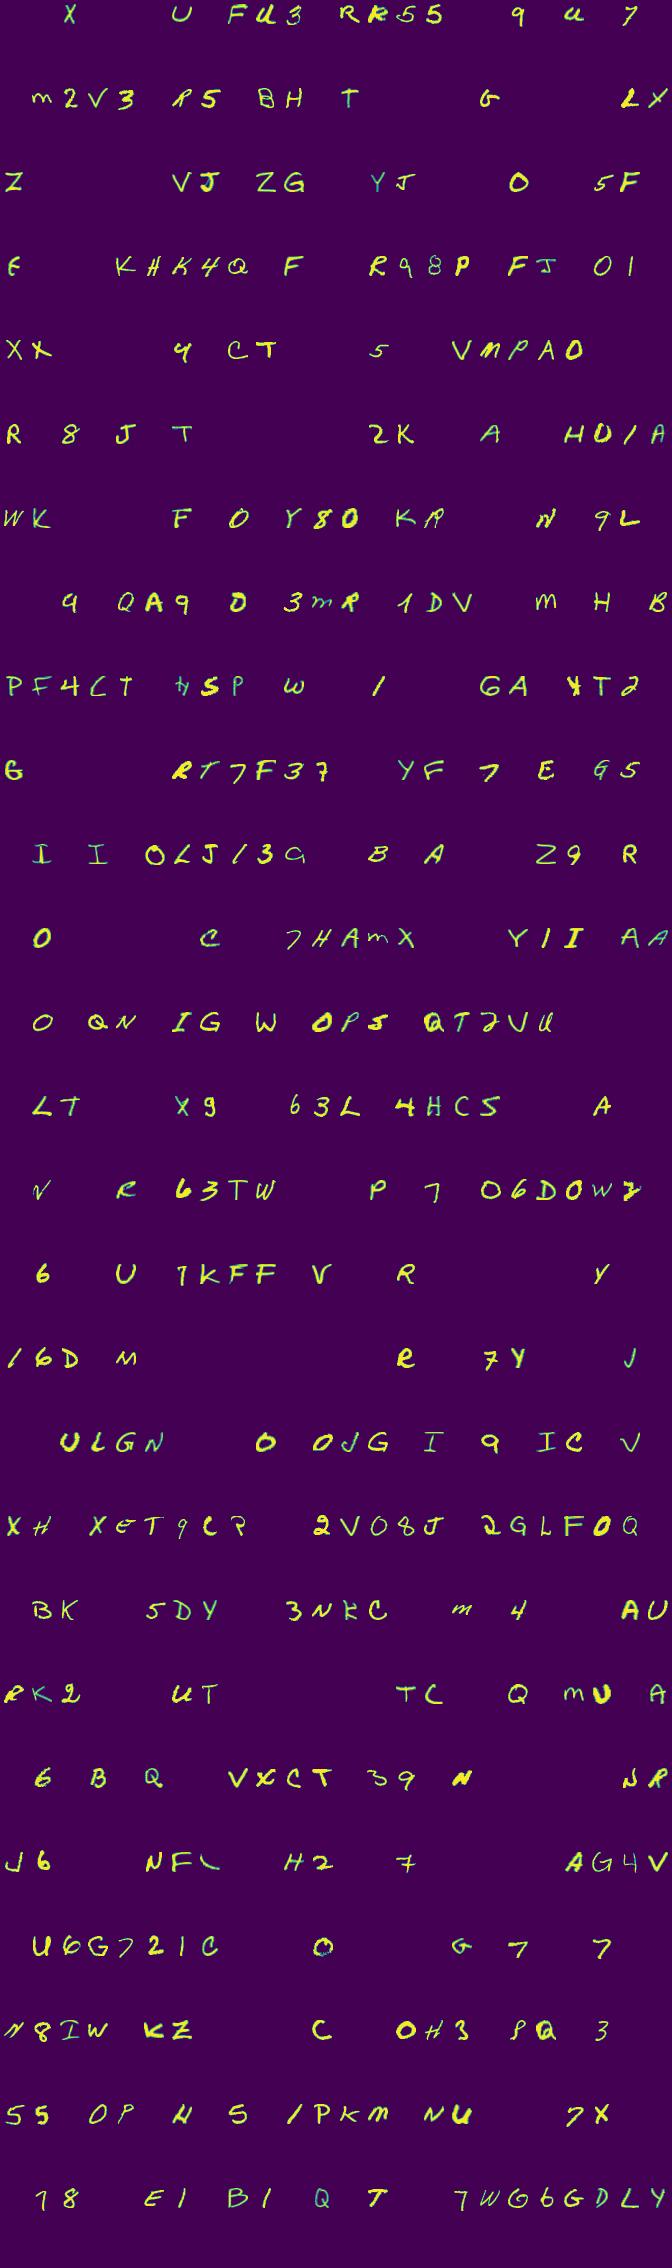 X U FU3 RR55 9 U 7
M2V3 R5 BH T G LX
Z VJ ZG YJ O 5F
E KHK4Q F R98P FJ 01
XX 4 CT 5 VMPAO
R 8 J T 2K A HO1A
WK F 0 Y80 KR N 9L
9 QA9 D 3MR 1DV M H B
PF4CT H5P W 1 GA YT2
G RT7F37 YF 7 E G5
I I OLJ13Q B A Z9 R
0 C 7HAMX Y1I AA
O QN IG W OP5 QT2VU
LT X9 63L 4HC5 A
V R 63TW P 7 06D0W2
6 U 1KFF V R Y
16D M R 7Y J
ULGN O OJG I 9 IC V
XH XET9CR 2V08J 2GLF0Q
BK 5DY 3NKC M 4 AU
RK2 UT TC Q MU A
6 B Q VXCT 39 N NR
J6 NFL H2 7 AG4V
U6G721C O G 7 7
N8IW KZ C OH3 PQ 3
55 OP N 5 1PKM NU 7X
78 E1 B1 Q T 7WG6GDLY